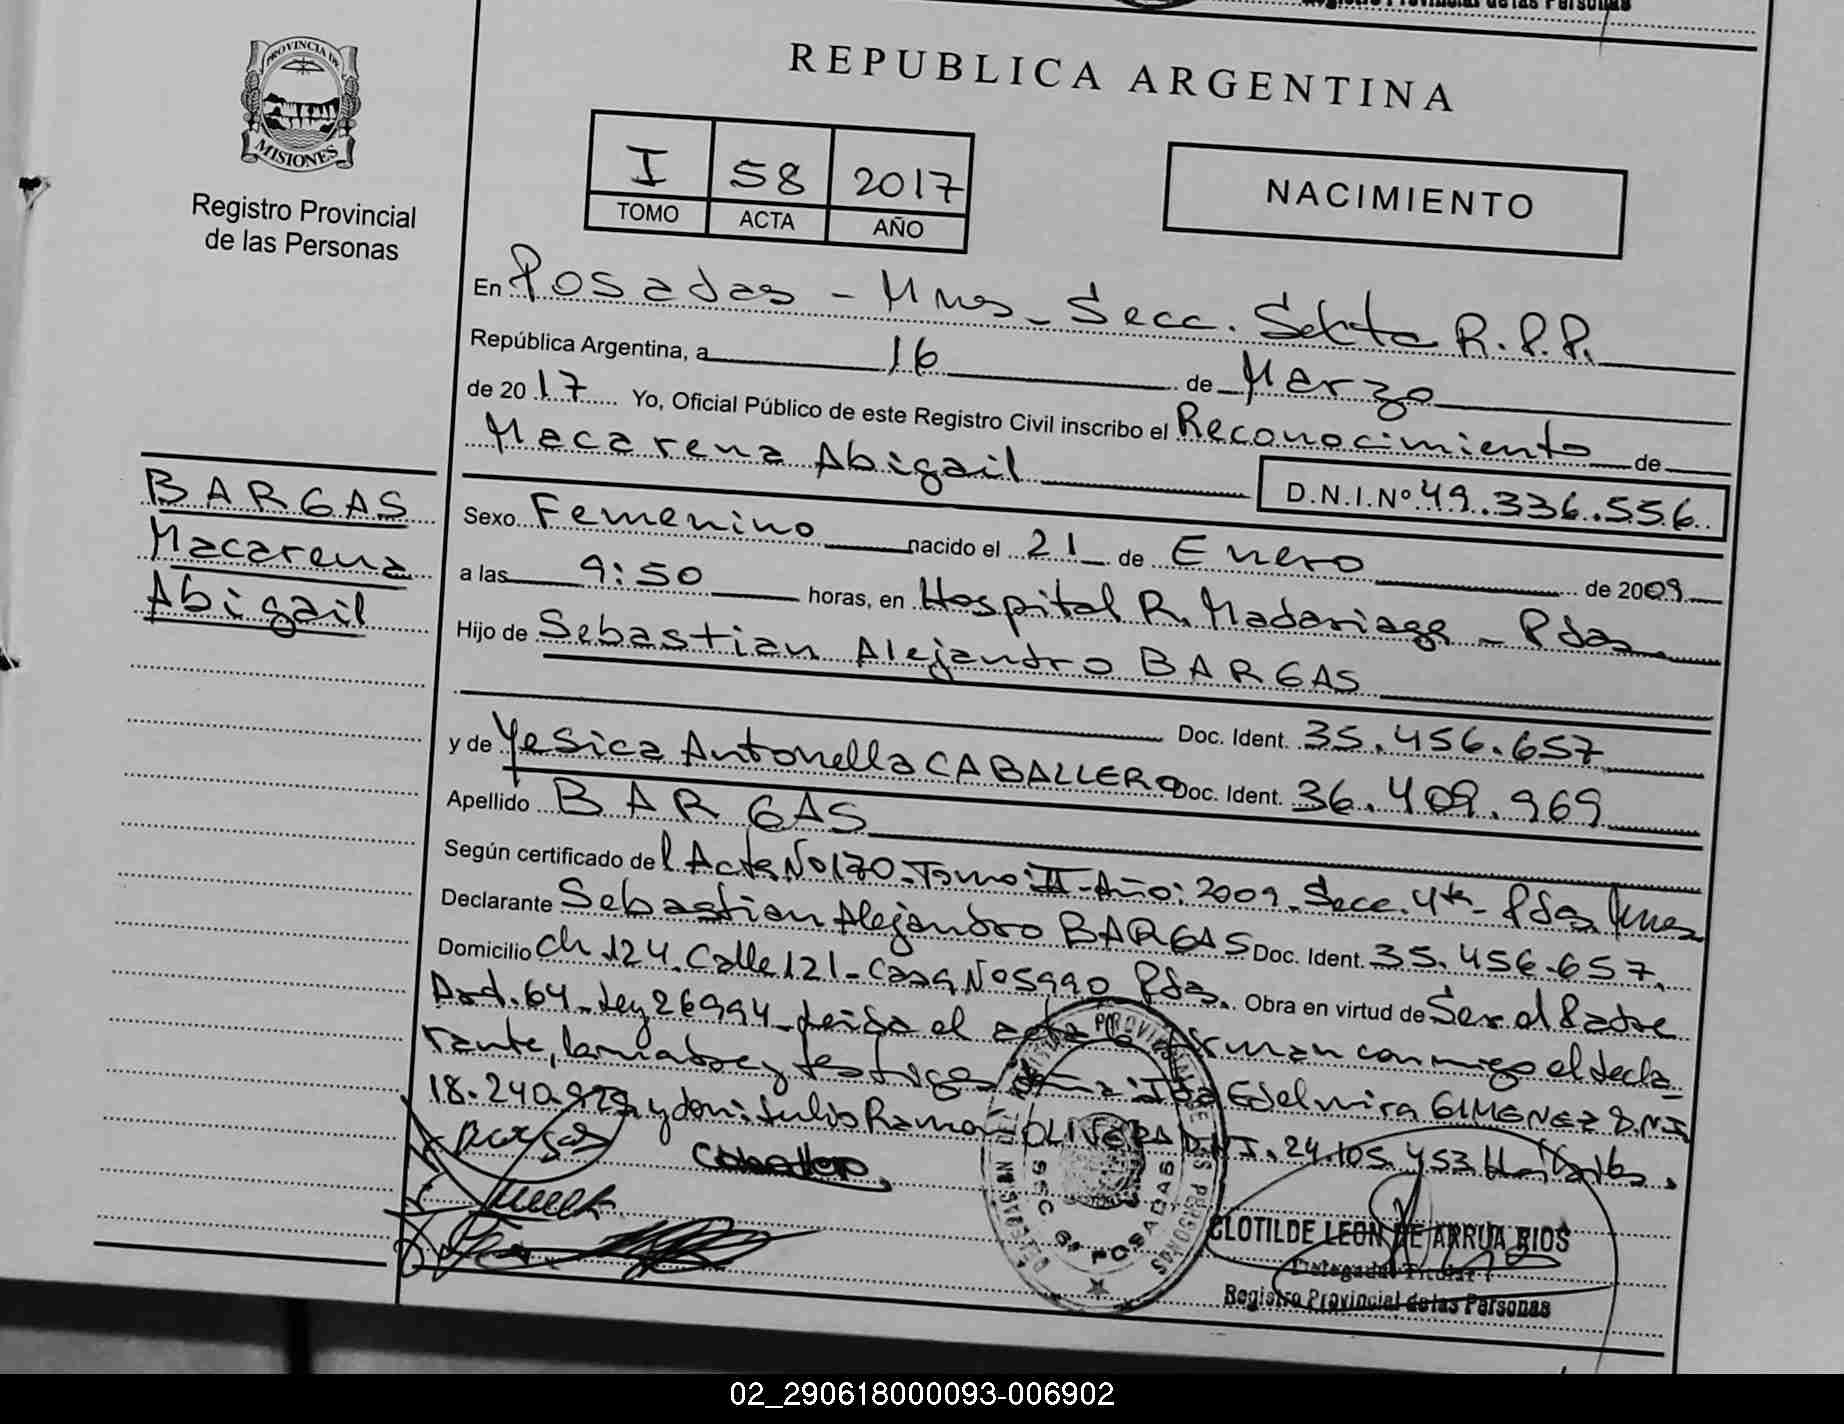 Registro Provincial de las Personas
PROVINCIA DE
MISIONES
Registro Provincial
de las Personas
REPUBLICA ARGENTINA
I 58 2017
TOMO ACTA AÑO
NACIMIENTO
En Posadas - Mnes - Secc. Sexta R.P.P.
República Argentina, a 16 de Marzo
de 2017 Yo, Oficial Público de este Registro Civil inscribo el Reconocimiento de
Macarena Abigail
D.N.I.Nº 49.336.556
BARGAS
Macarena
Abigail
Sexo Femenino nacido el 21 de Enero de 2009
a las 9:50 horas, en Hospital R. Madariaga - Pdas
Hijo de Sebastian Alejandro BARGAS
Doc. Ident. 35.456.657
y de Yesica Antonella CABALLERO Doc. Ident. 36.409.969
Apellido BARGAS
Según certificado del Acta Nº 170 - Tomo: II - Año: 2009 - Secc. 4ta - Pdas Mnes
Declarante Sebastian Alejandro BARGAS Doc. Ident. 35.456.657.
Domicilio Ch 124. Calle 121 - Casa Nº 5990 Pdas. Obra en virtud de Ser el Padre
Art. 64 - Ley 26994 - Leida el acta firman conmigo el decla
rante, la madre y testigos Ida Edelmira GIMENEZ D.N.I
18.240.929 y don: Julio Ramon OLIVERA D.N.I. 24.105.453
Bargas
SEC 6ª POSADAS
CLOTILDE LEON DE ARRUA RIOS
Delegada Titular
Registro Provincial de las Personas
02_290618000093-006902